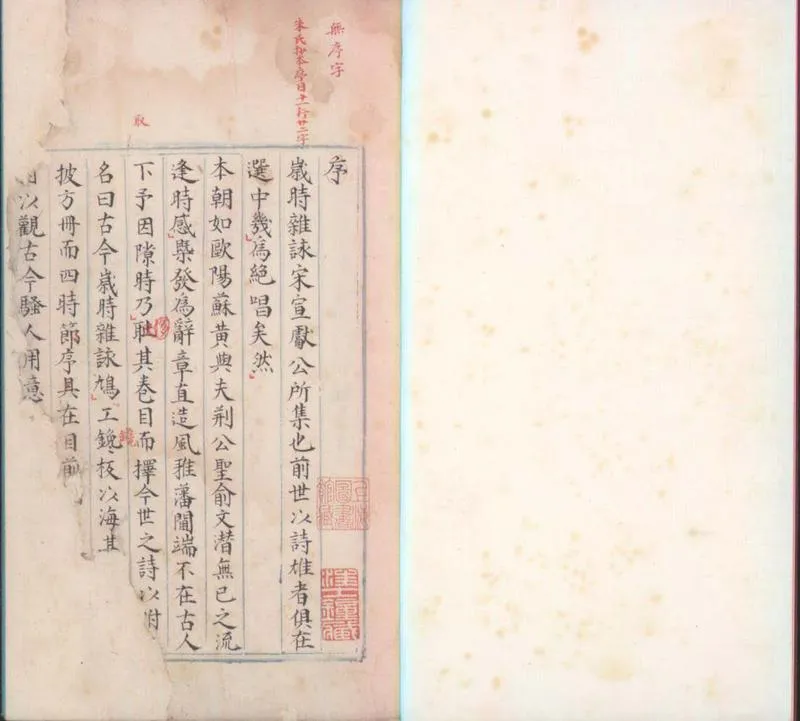 無序字
朱氏抄本序目十一行廿二字
取
序
歲時雜詠宋宣獻公所集也前世以詩雄者俱在
選中幾爲絕唱矣然
本朝如歐陽蘇黃與夫荆公聖俞文潛無已之流
逢時感槩發爲辭章直造風雅藩閫端不在古人
下予因隙時乃耴其卷目而擇今世之詩以附
名曰古今歲時雜詠鳩工鑱板以海其
披方冊而四時節序具在目前
以觀古今騷人用意